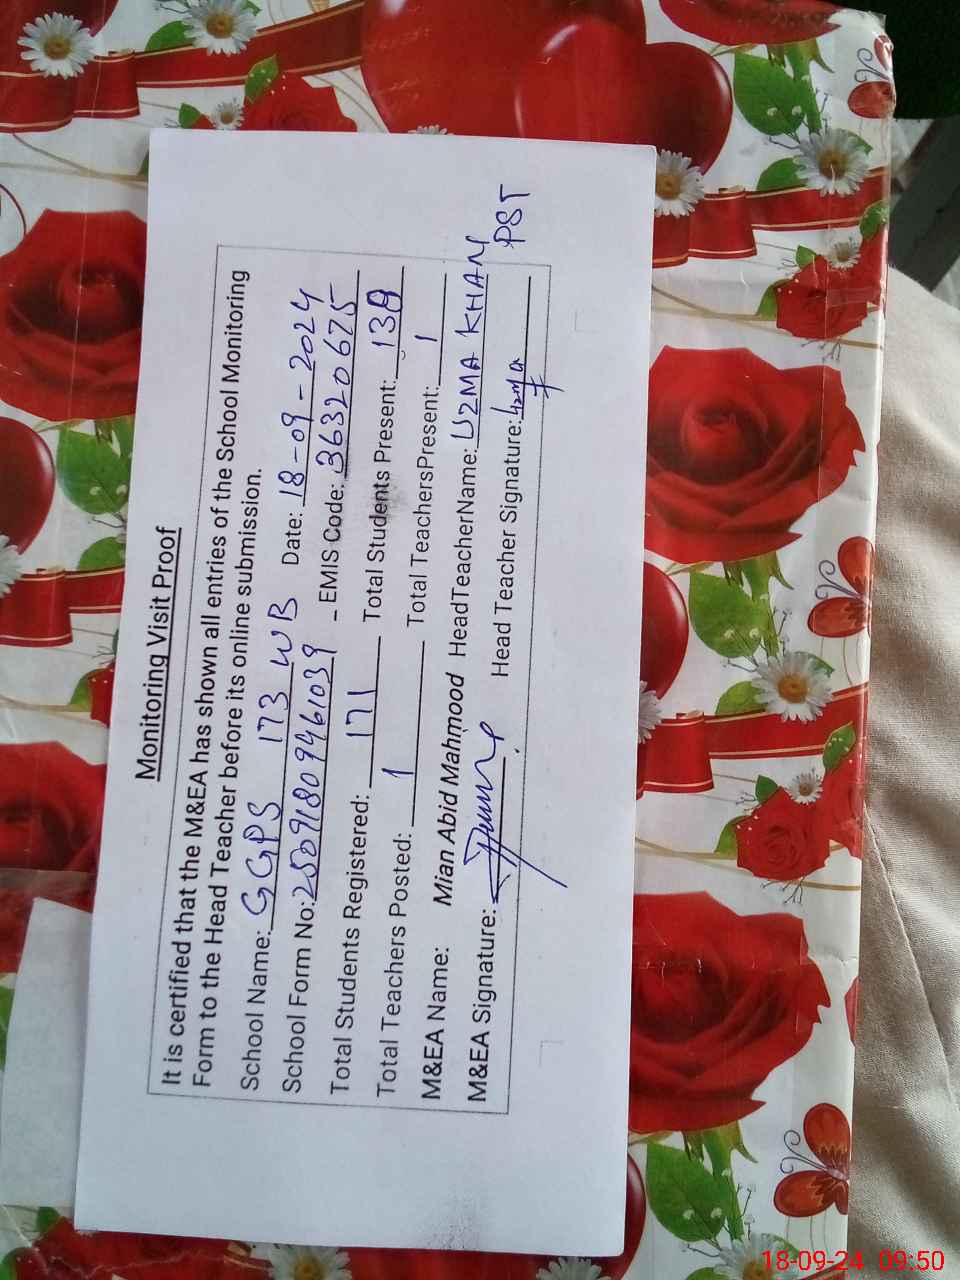 Monitoring Visit Proof
It is certified that the M&EA has shown all entries of the School Monitoring
Form to the Head Teacher before its online submission.
School Name: GGPS 173 WB Date: 18-09-2024
School Form No: 25091809461039 EMIS Code: 36320675
Total Students Registered: 171 Total Students Present: 138
Total Teachers Posted: 1 Total TeachersPresent: 1
M&EA Name: Mian Abid Mahmood HeadTeacherName: UZMA KHAN
PST
M&EA Signature: Head Teacher Signature: Uzma
18-09-24 09:50